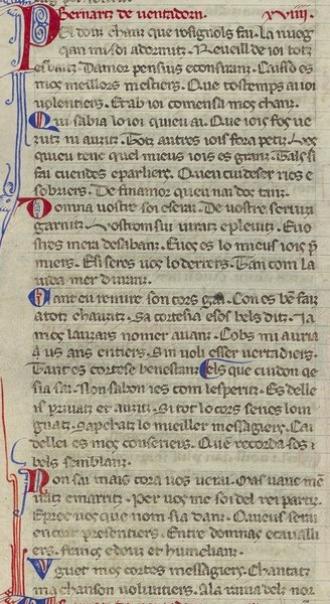 Bernartz de uentadorn. xxviiii.
Pel dolz chanz que rosignols fai. La nuog
qan mi soi adormitz. Reueill de ioi totz
esbaitz. Damor pensius econsirans. Caisso es
mos meillors mestiers. Que tostemps ai ioi
uolentiers. Et ab ioi comensa mos chanz.
Qui sabia lo ioi quieu ai. Que iois fos ue
zutz ni auzitz. Totz autres iois fora petitz. Vas
quieu tenc quel mieus iois es granz. Tals si
fai cuendes eparliers. Quen cuidesser rics e
sobriers. De finamor quieu nai dos tanz.
Domna uostre soi eserai. De uostre seruizi
garnitz. Vostrom sui iuratz epleuitz. Euo
stres mera desabanz. Euos es lo mieus iois p
miers. Esi seres uos loderrers. Tan com la
uida mer duranz.
Cant eu remire son cors gai. Con es be faitz
atotz chauzitz. Sa cortesia esos bels ditz. Ja
mos lauzars nomer auanz. Cobs mi auria
a us ans entiers. Si n uoli esser uertadiers.
Tant es cortese benestanz. Cels que cuidon qe
sia sai. Non sabon ies com lesperitz. Es delle
is priuatz et aizitz. Si tot lo cors senes loin
gnatz. Sapchatz lo mieiller messagiers. Cai
dellei es mos consiriers. Que recorda sos
bels semblanz.
Non sai mais cora uos ueirai. Mas uauc men
iratz emarritz. Per uos me soi del rei partitz.
Eprec uos que nom sia danz. Caueus serai
encort presentiers. Entre domnas ecauall
iers. francs edoutz et humelianz.
Vguet mos cortes messagiers. Chantatz
ma chanson uoluntiers. Ala raina dels nor